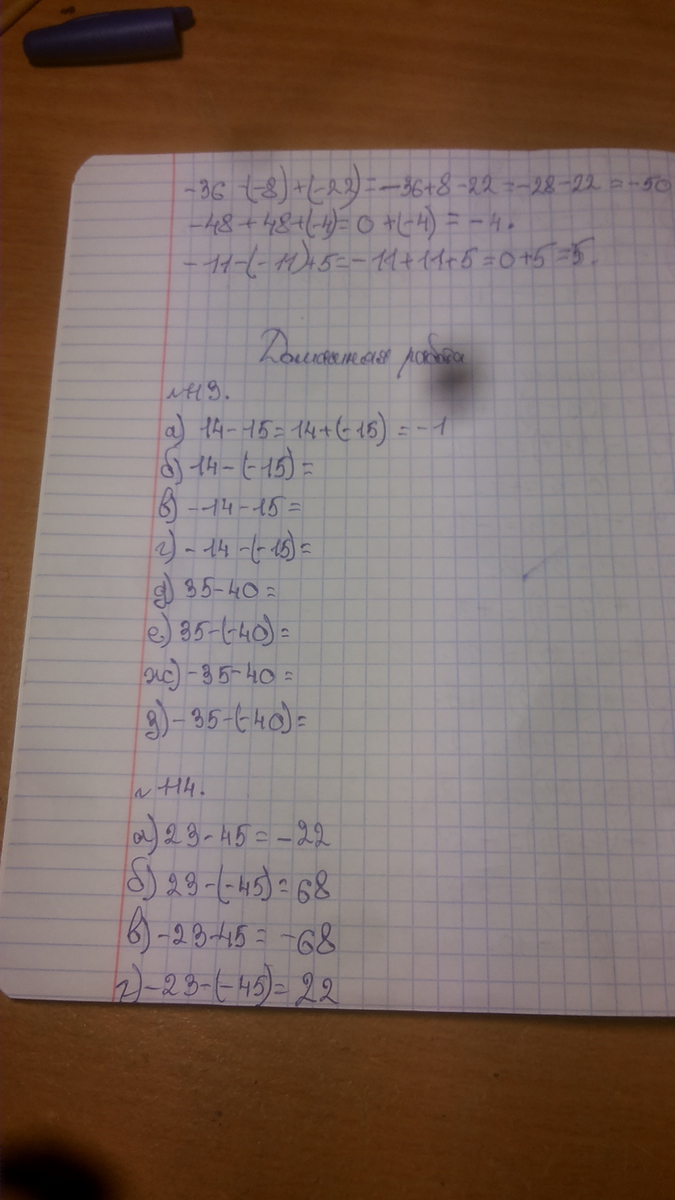 -36 -(-8)+(-22)=-36+8-22=-28-22=-50
-48+48+(-4)=0+(-4)=-4.
-11-(-11)+5=-11+11+5=0+5=5.
Домашняя работа
№113.
а) 14-15=14+(-15)=-1
б) 14-(-15)=
в) -14-15=
г) -14-(-15)=
д) 35-40=
е) 35-(-40)=
ж) -35-40=
з) -35-(-40)=
№114.
а) 23-45=-22
б) 23-(-45)=68
в) -23-45=-68
г) -23-(-45)=22